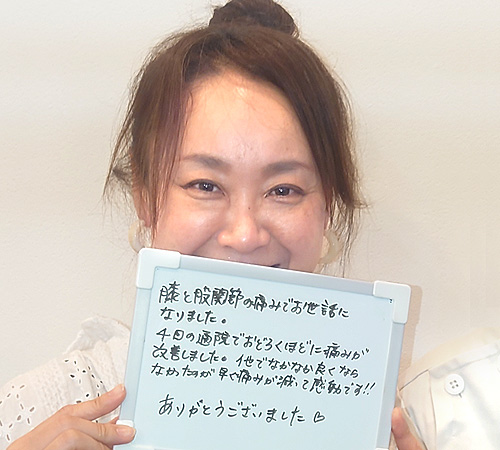 膝と股関節の痛みでお世話に
なりました。
4日の通院でおどろくほどに痛みが
改善しました。他でなかなか良くなら
なかったのが早く痛みが減って感動です!!
ありがとうございました♡